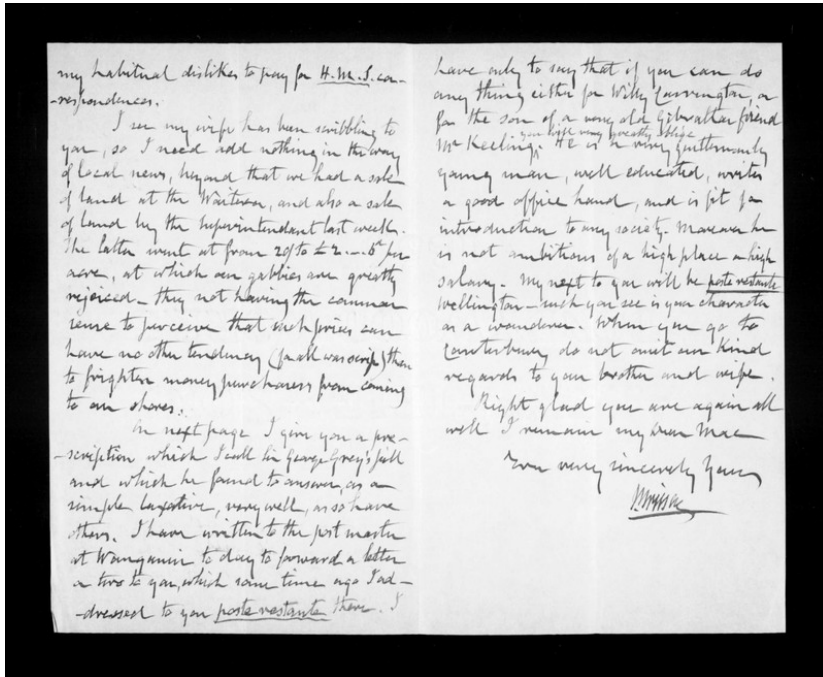 my habitual dislikes to pay for H.M.S. cor-
-respondences.
I see my wife has been scribbling to
you, so I need add nothing in the way
of local news, beyond that we had a sale
of land at the Waitera, and also a sale
of land by the Superintendant last week.
The latter went at from 20/ to £2.-.6d per
acre, at which our gabbies are greatly
rejoiced - they not having the common
sense to perceive that such prices can
have no other tendency (for all was scrip) than
to frighten money purchasers from coming
to our shores.
On next page I give you a pre-
-scription which I call Sir George Grey's pill
and which he found to answer, as a
simple laxative, very well, as so have
others. I have written to the post master
at Wanganui to day to forward a letter
or two to you, which some time ago I ad-
-dressed to you poste restante there. I
have only to say that if you can do
any thing either for Willy Carrington, or
for the son of a very old Gibraltar friend
you will very greatly oblige
Mr Keeling. He is a very gentlemanly
young man, well educated, writes
a good office hand, and is fit for
introduction to any society. Moreover he
is not ambitious of a high place or high
salary. My next to you will be poste restante
Wellington - such you see is your character
as a wanderer. When you go to
Canterbury do not omit our kind
regards to your brother and wife.
Right glad you are again all
well I remain my Dear Mac
Ever very sincerely Yours